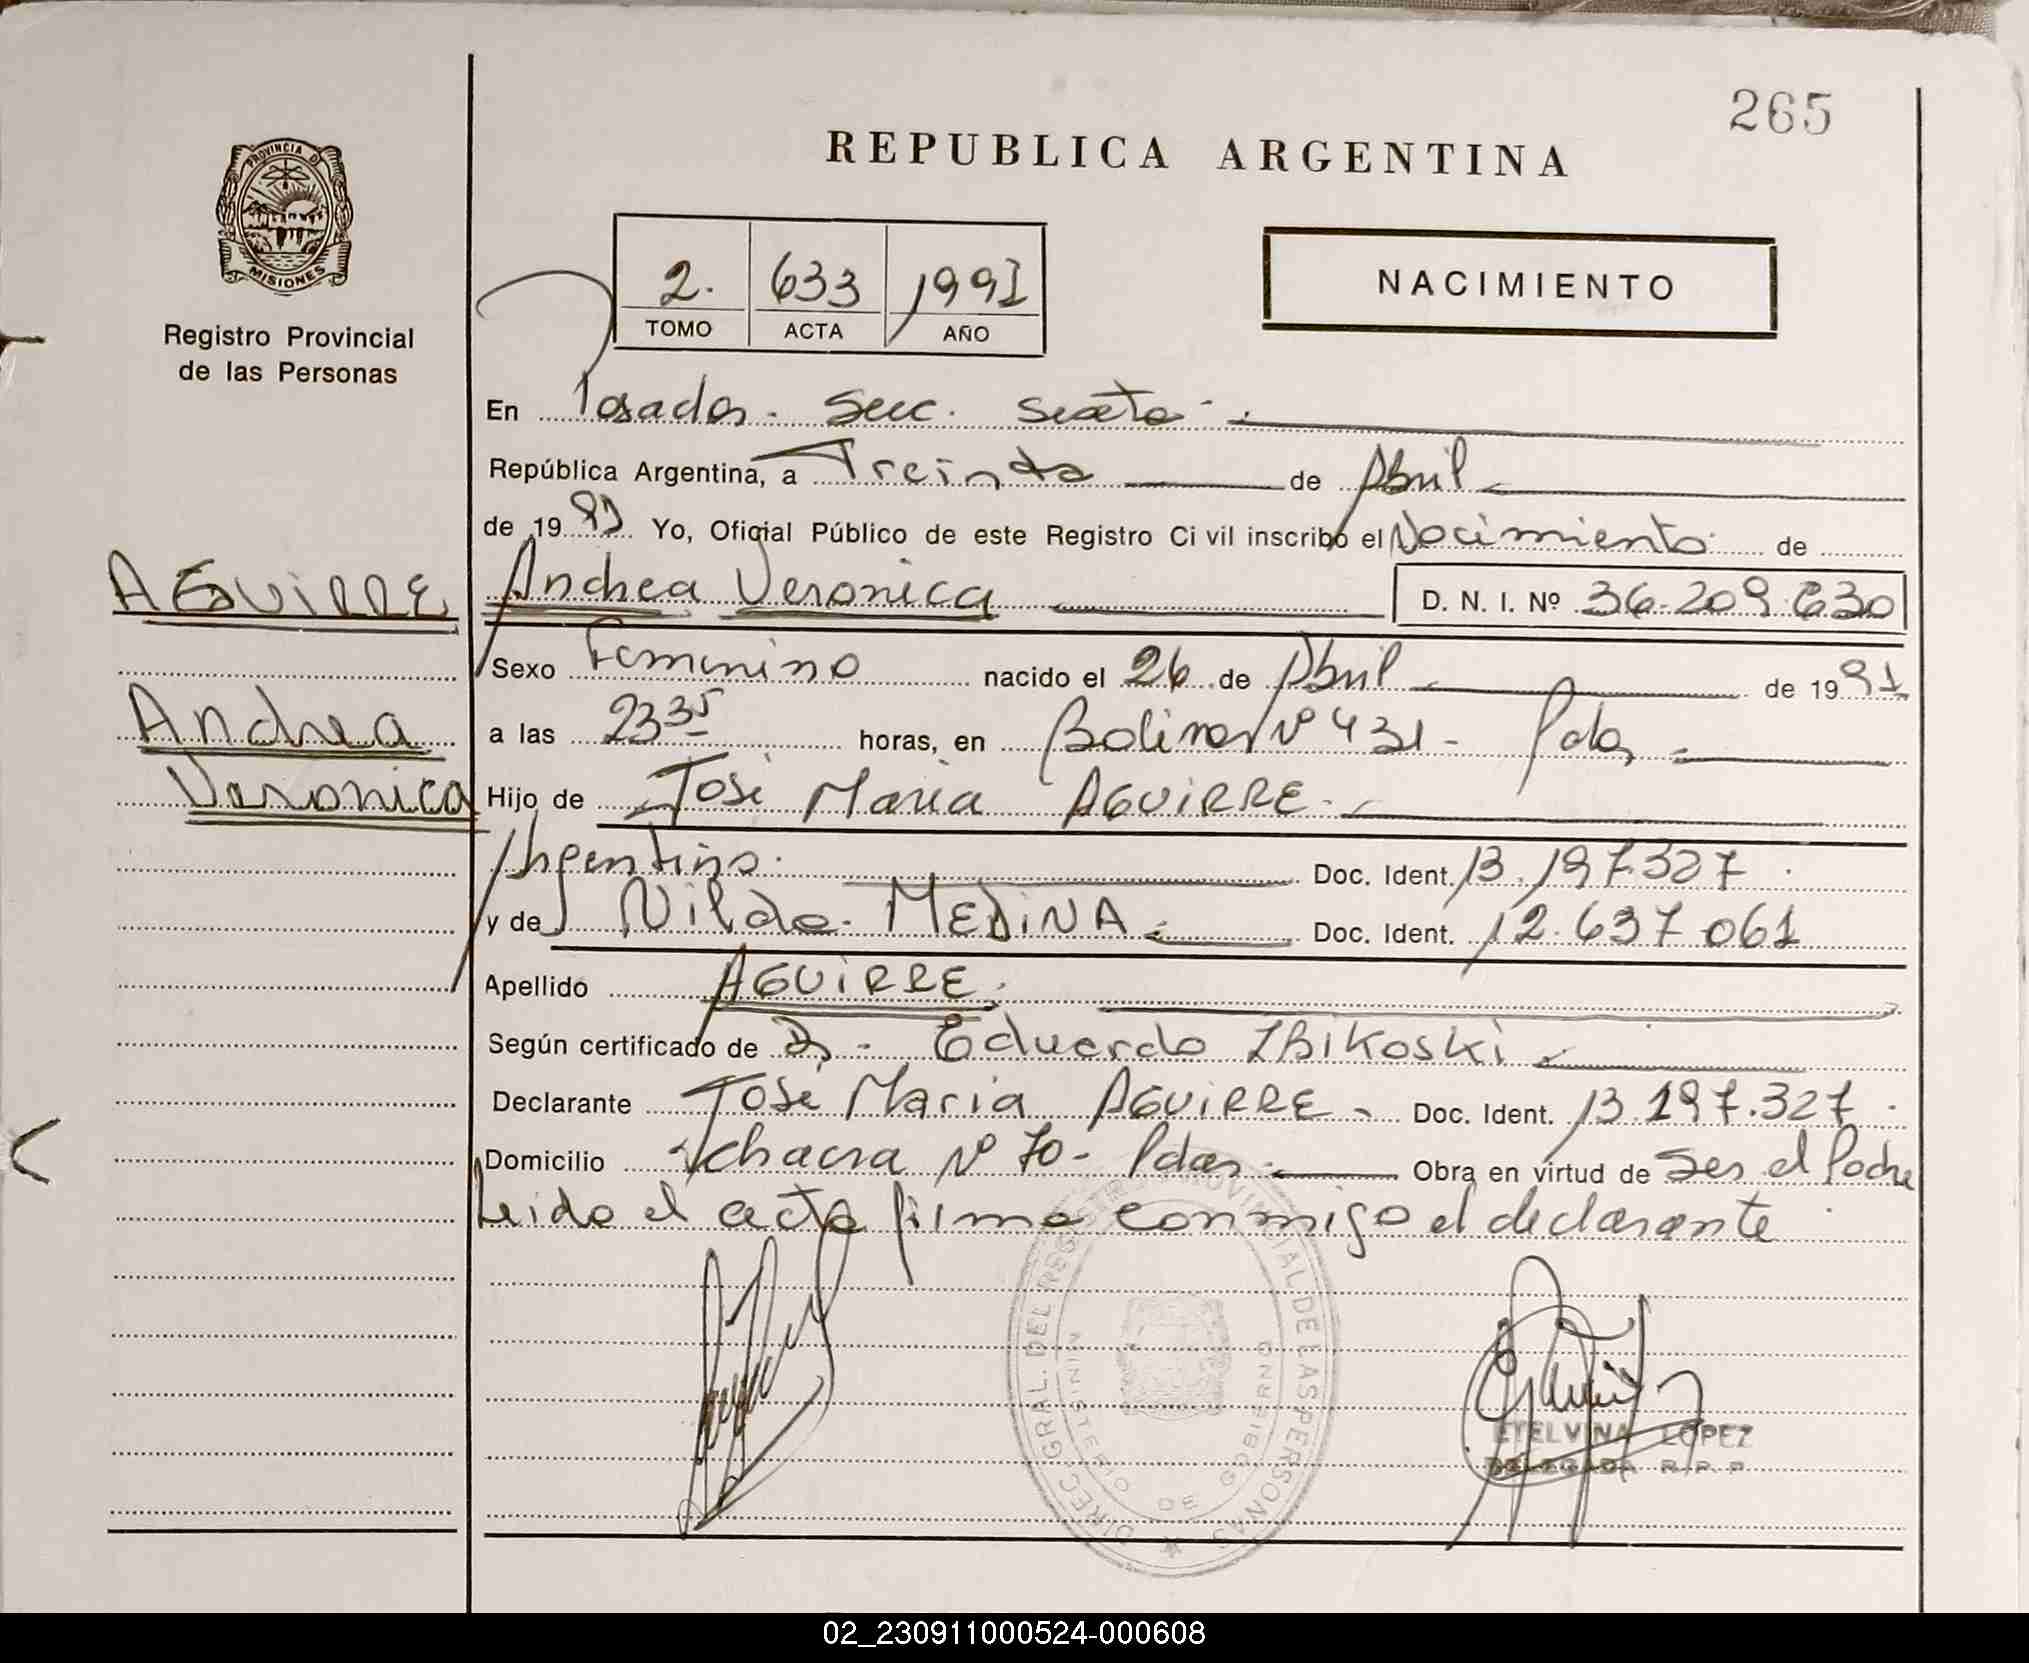 265
REPUBLICA ARGENTINA
PROVINCIA DE
MISIONES
Registro Provincial
de las Personas
2. 633 1991
TOMO ACTA AÑO
NACIMIENTO
En Posadas - Secc. sexta -
República Argentina, a Treinta de Abril
de 1991 Yo, Oficial Público de este Registro Ci vil inscribo el Nacimiento de
AGUIRRE
Andrea Veronica D. N. I. Nº 36-209-630
Sexo Femenino nacido el 26 de Abril de 1991
Andrea
Veronica
a las 23 35 horas, en Nº 431 - Pdas
Hijo de José Maria AGUIRRE -
Argentino. Doc. Ident. 13.197.327
y de Nilda MEDINA Doc. Ident. 12.637.061
Apellido AGUIRRE
Según certificado de Dr - Eduardo ZBIKOSKI
Declarante José Maria AGUIRRE - Doc. Ident. 13.197.327
Domicilio chacra Nº 70 - Pdas - Obra en virtud de ser el Padre
Leida el acta firma conmigo el declarante
DIREC. GRAL. DEL REGISTRO PROVINCIAL DE LAS PERSONAS
MINISTERIO DE GOBIERNO
ETELVINA LOPEZ
DELEGADA R. P. P.
02_230911000524-000608